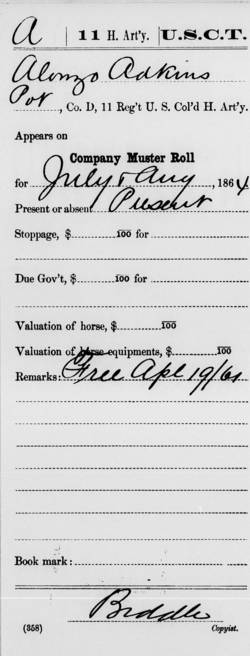 A | 11 H. Art'y. | U.S.C.T.
Alonzo Adkins
Pvt, Co. D, 11 Reg't U. S. Col'd H. Art'y.
Appears on
Company Muster Roll
for July & Aug, 1864
Present or absent Present
Stoppage, $ 100 for
Due Gov't, $ 100 for
Valuation of horse, $ 100
Valuation of horse equipments, $ 100
Remarks: Free Apl 19/61
Book mark:
Biddle
(358) Copyist.